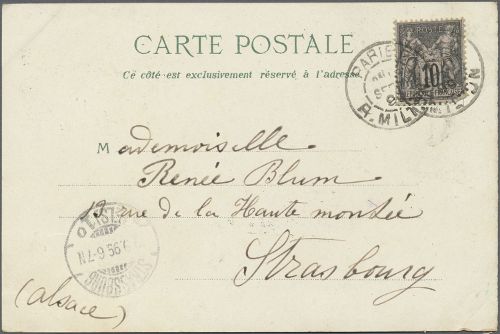 CARTE POSTALE
Ce côté est exclusivement réservé à l'adresse.
10
PARIS
R. MILTON
Mademoiselle
Renée Blum
19 rue de la Haute montée
Strasbourg
(Alsace)
.99.6-7N